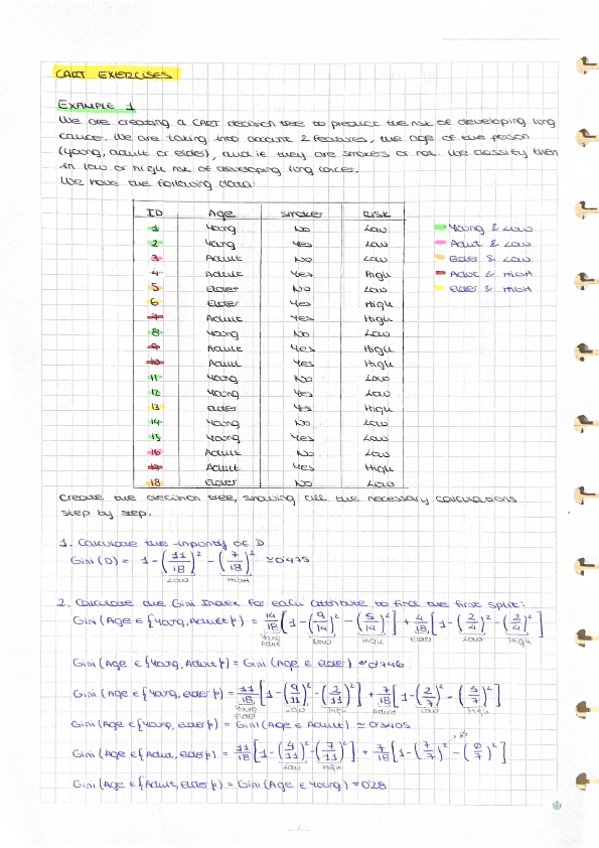 CART EXERCISES
EXAMPLE 1
We are creating a CART decision tree to predict the risk of developing long
cancer. We are taking into account 2 features, the age of the person
(young, adult or elder), and if they are smokers or not. We classify them
in low or high risk of developing long cancer.
We have the following data:
ID Age Smoker Risk
1 Young No Low
2 Young Yes Low
3 Adult No Low
4 Adult Yes High
5 Elder No Low
6 Elder Yes High
7 Adult Yes High
8 Young No Low
9 Adult Yes High
10 Adult Yes High
11 Young No Low
12 Young Yes Low
13 Elder Yes High
14 Young No Low
15 Young Yes Low
16 Adult No Low
17 Adult Yes High
18 Elder No Low
Young & Low
Adult & Low
Elder & Low
Adult & High
Elder & High
Create the decision tree, showing all the necessary calculations
step by step.
1. Calculate the impurity of D
Gini (D) = 1 - (11/18)² - (7/18)² ≃ 0'475
Low High
2. Calculate the Gini Index for each attribute to find the first split:
Gini (Age ∈ {Young, Adult}) = 14/18 [1 - (9/14)² - (5/14)²] + 4/18 [1 - (2/4)² - (2/4)²]
Young Adult Low High Elder Low High
Gini (Age ∈ {Young, Adult}) = Gini (Age ∈ Elder) ≃ 0'746
Gini (Age ∈ {Young, elder}) = 11/18 [1 - (9/11)² - (2/11)²] + 7/18 [1 - (2/7)² - (5/7)²]
Young elder Low High Adult Low High
Gini (Age ∈ {Young, elder}) = Gini (Age ∈ Adult) ≃ 0'3405
Gini (Age ∈ {Adult, elder}) = 11/18 [1 - (4/11)² - (7/11)²] + 7/18 [1 - (7/7)² - (0/7)²]
Low High
Gini (Age ∈ {Adult, elder}) = Gini (Age ∈ Young) ≃ 0'28